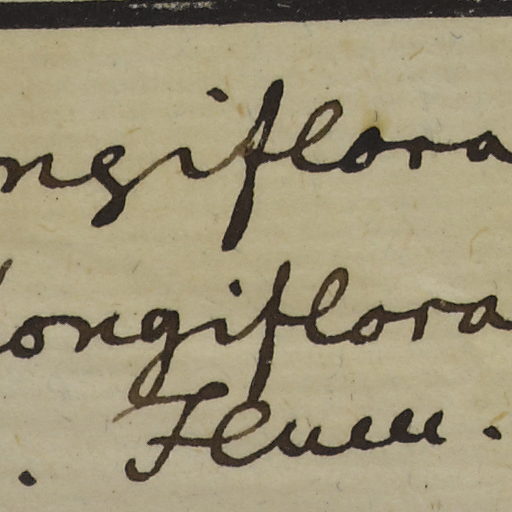 ngiflora
longiflora
. Flum.